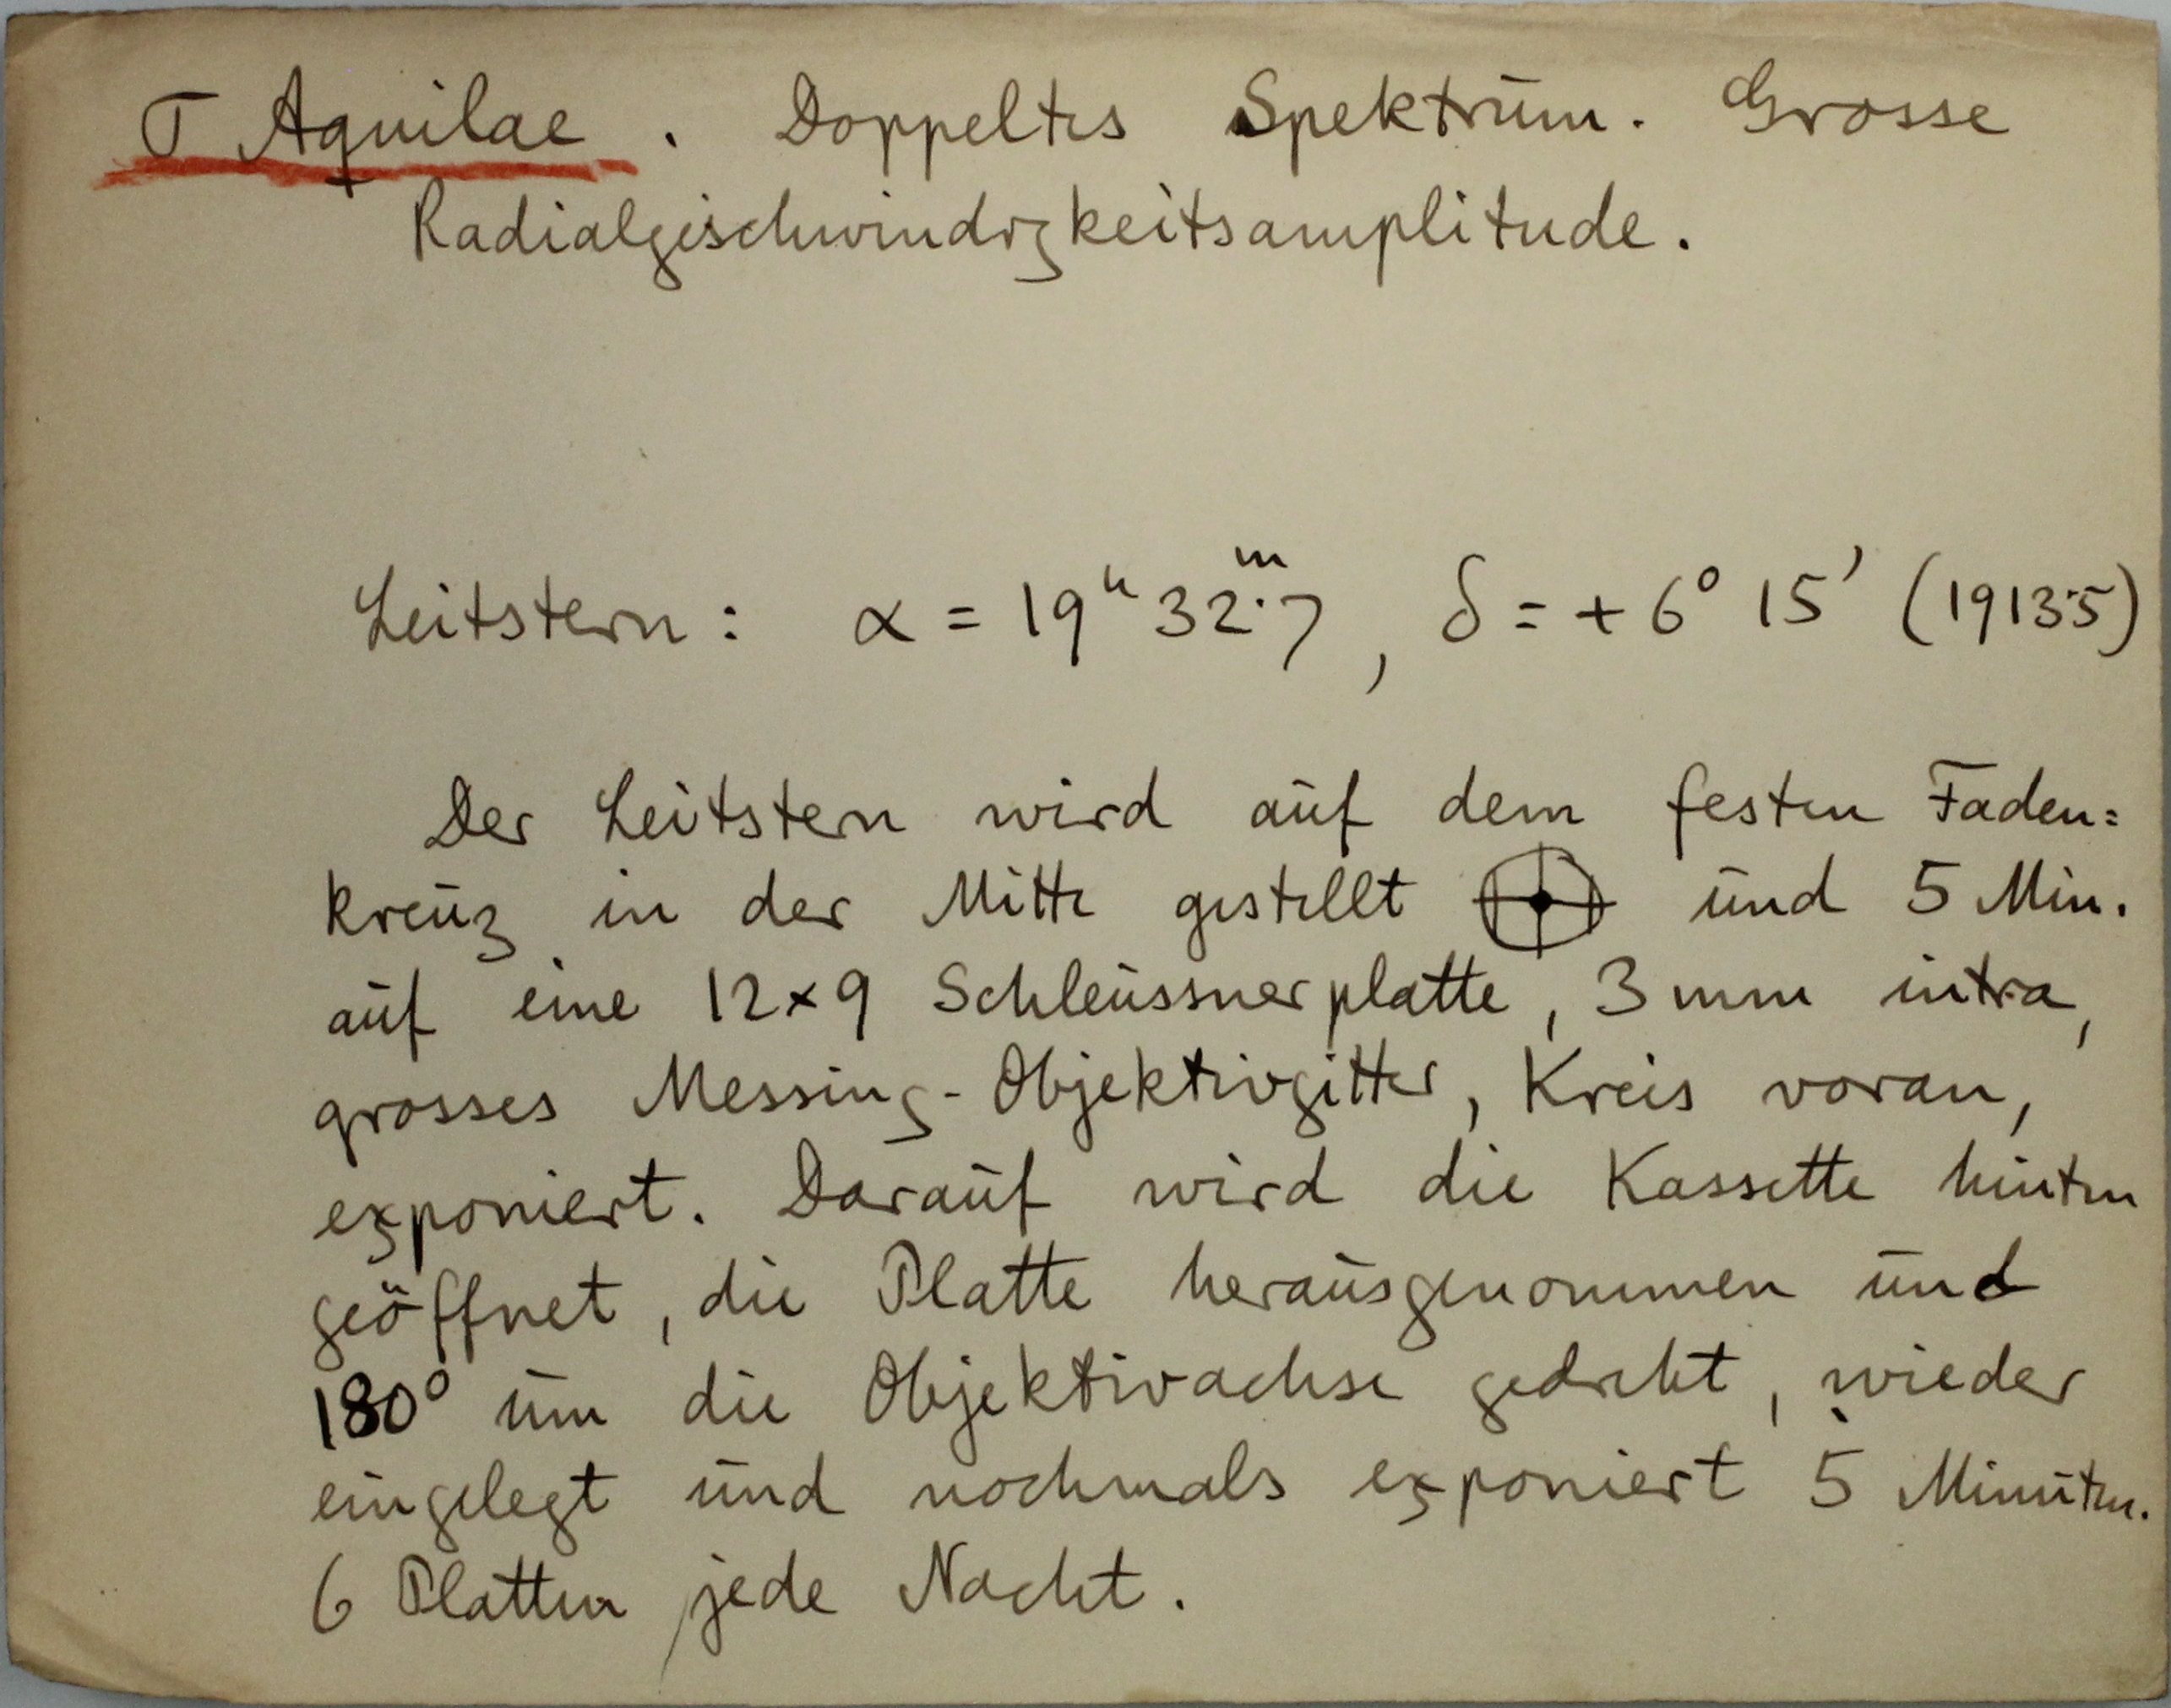 σ Aquilae. Doppeltes Spektrum. Grosse
Radialgeschwindigkeitsamplitude.
Leitstern: α = 19ʰ 32ᵐ.7, δ = + 6° 15' (1913.5)
Der Leitstern wird auf dem festen Faden=
kreuz in der Mitte gestellt und 5 Min.
auf eine 12×9 Schleussnerplatte, 3 mm intra,
grosses Messing-Objektivgitter, Kreis voran,
exponiert. Darauf wird die Kassette hinten
geöffnet, die Platte herausgenommen und
180° um die Objektivachse gedreht, wieder
eingelegt und nochmals exponiert 5 Minuten.
6 Platten jede Nacht.